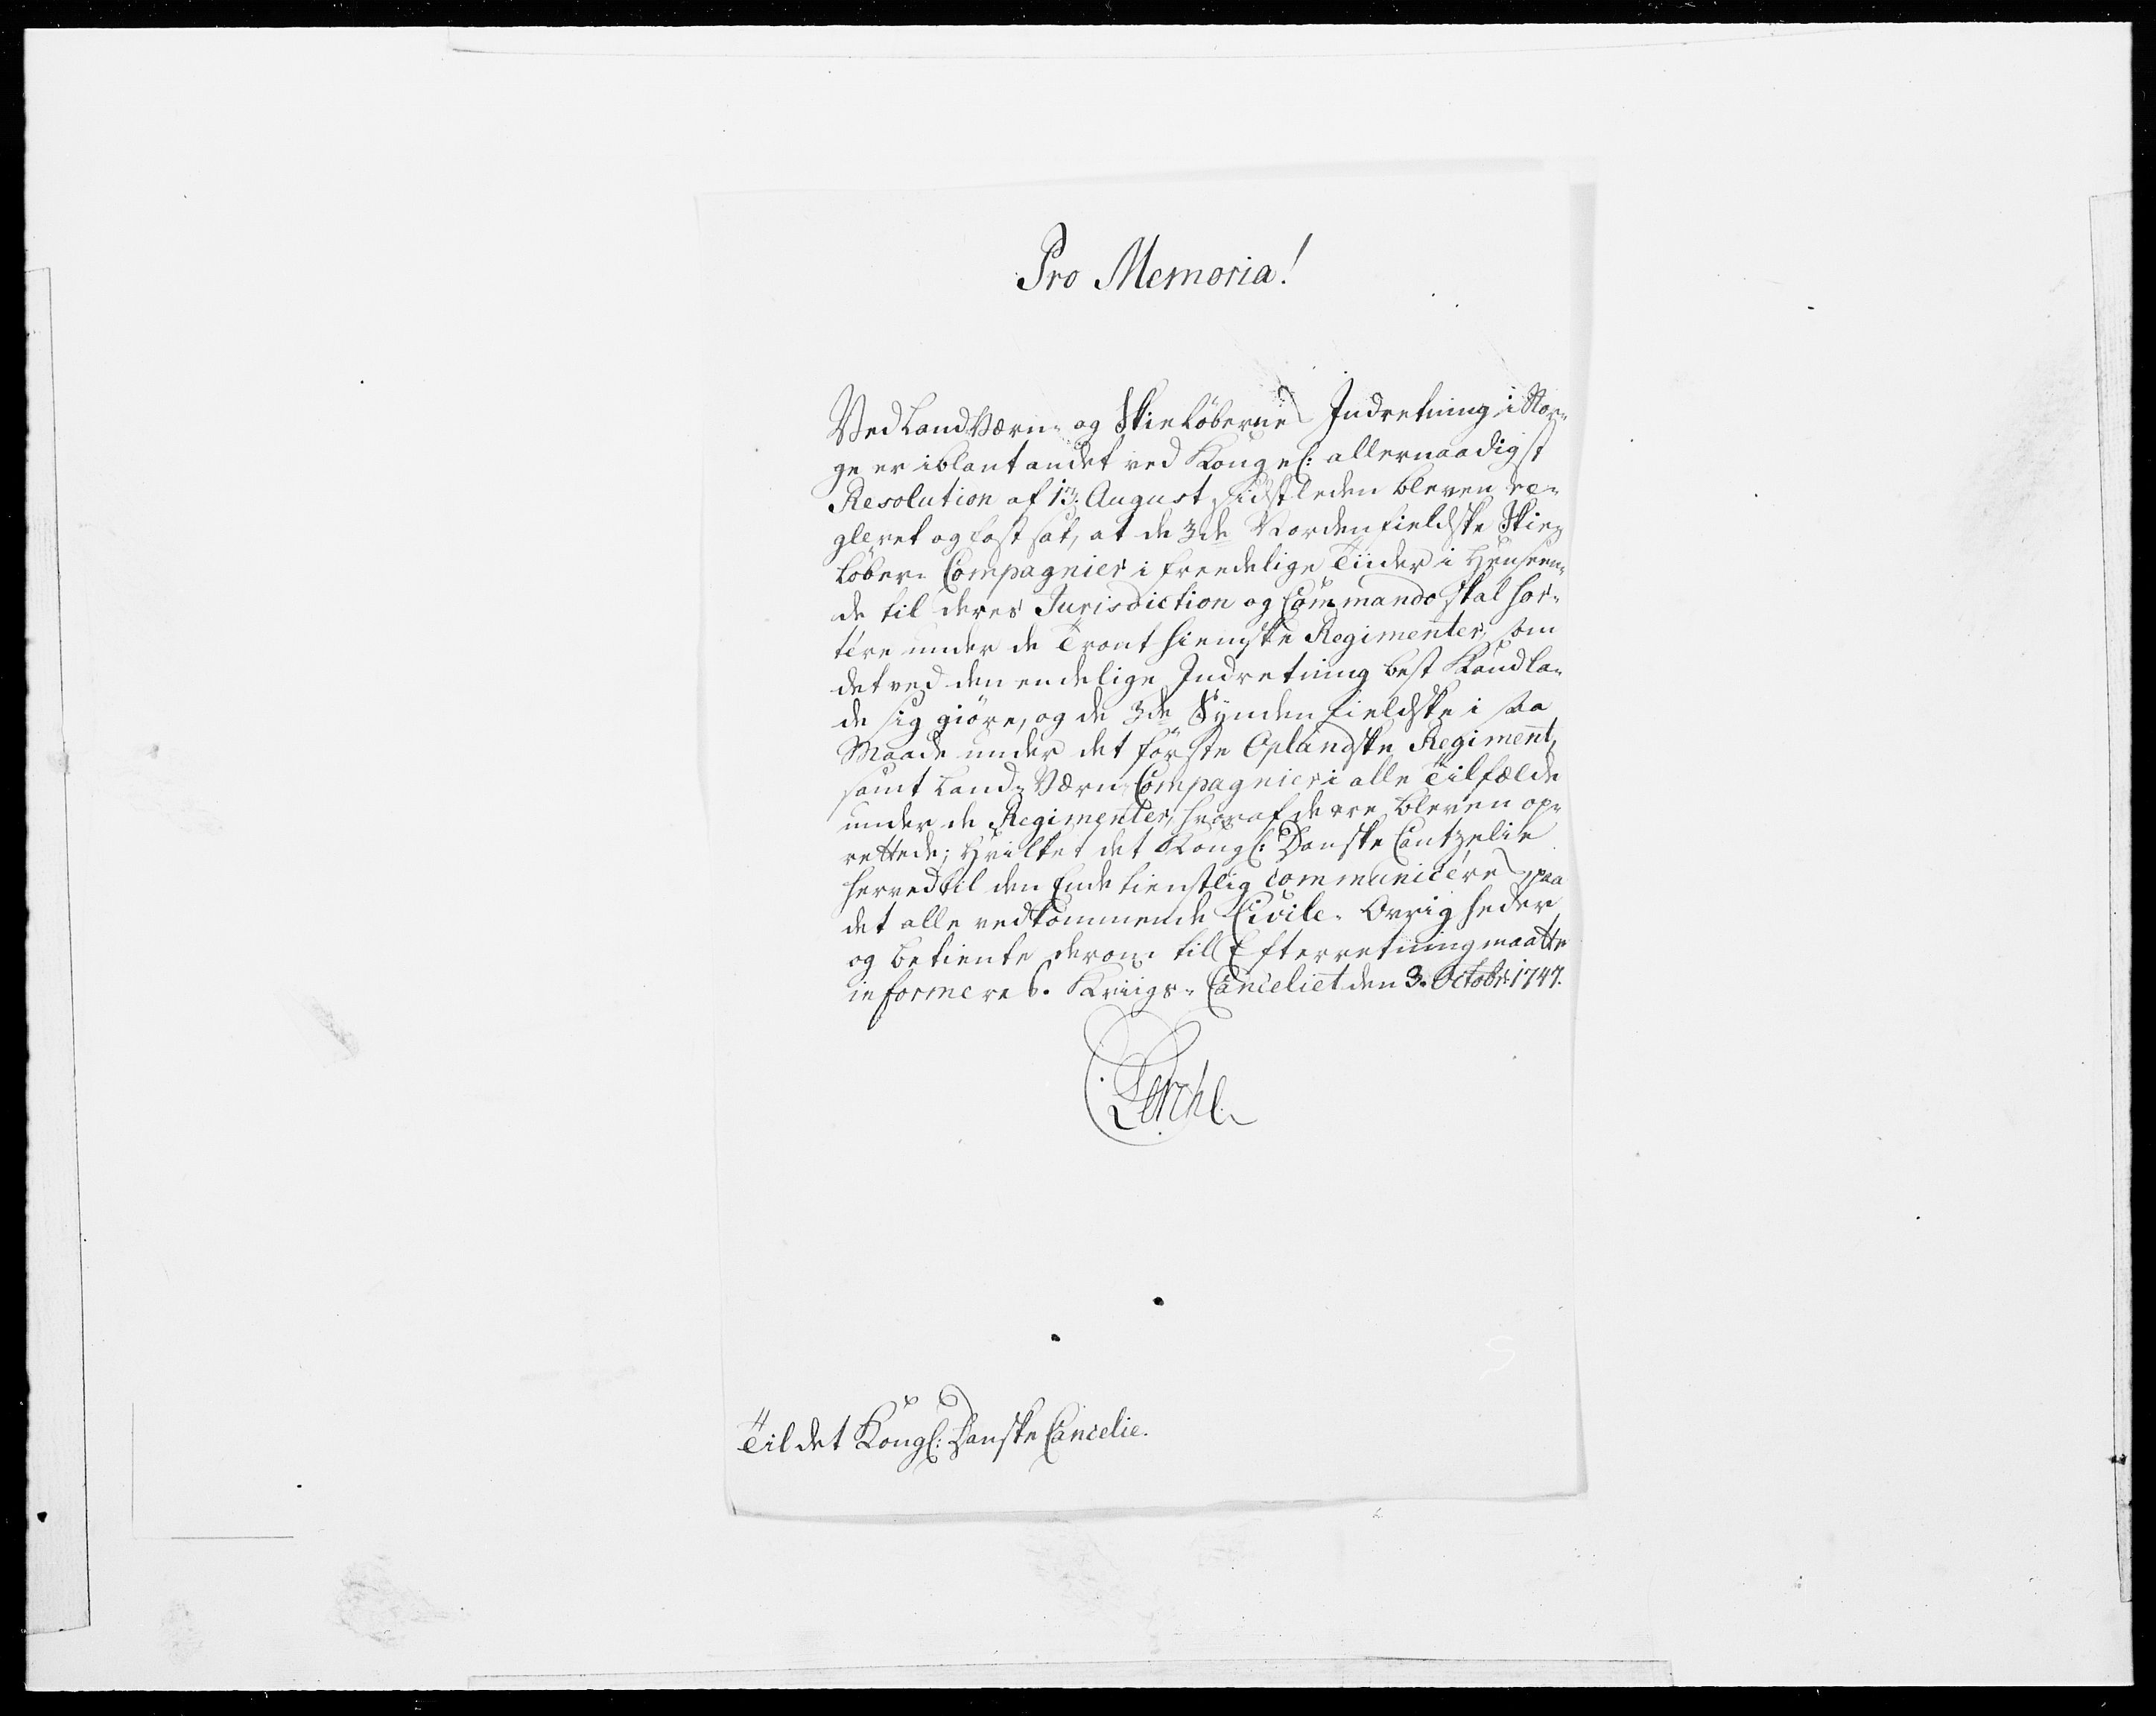 Pro Memoria!
Ved Land Værn- og Skie Löbernes Indretning i Nor-
ge er iblant andet ved Kongel: allernaadigst
Resolution af 13. August sidstleden bleven re-
gleret og fastsat, at de 3de Nordenfieldske Skie-
löber- Compagnier i freedelige Tiider i Henseen-
de til deres Jurisdiction og Commando skal sor-
tére under de Tronthiemske Regimenter, som
det ved den endelige Indretning best Kand la-
de sig giöre, og de 3de Syndenfieldske i saa
Maade under det förste Oplandske Regiment,
samt Land-Værn-Compagnier i alle Tilfælde
under de Regimenter, hvoraf de ere bleven op-
rettede; Hvilket det Kongl: Danske Cantzelie
herved til den Ende tienstlig communicéres, paa
det alle vedkommende Civile- Øvrigheder
og betiente derom til Efterretning maatte
informeres. Kriigs-Canceliet den 3. Octobr: 1747.
Lerche
Til det Kongl: Danske Cancelie.